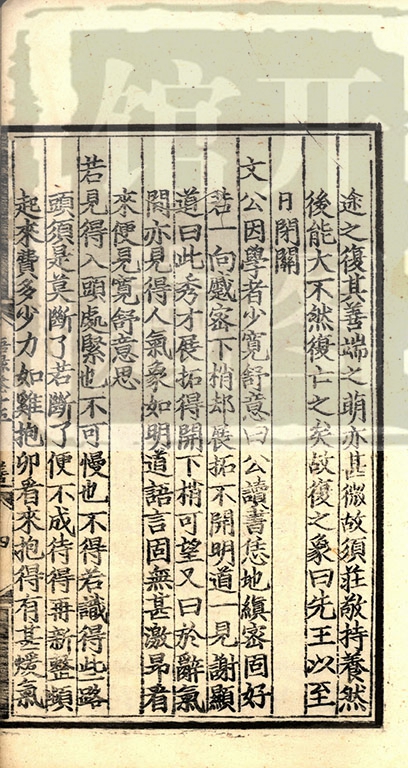 途之復其善端之萌亦甚微故須莊敬持養然
後能大不然復亡之矣故復之象曰先王以至
日閉關
文公因學者少寬舒意曰公讀書恁地縝密固好
若一向蹙密下梢却展拓不開明道一見謝顯
道曰此秀才展拓得開下梢可望又曰於辭氣
間亦見得人氣象如明道語言固無甚激昂看
來便見寬舒意思
若見得入頭處緊也不可慢也不得若識得些路
頭須是莫斷了若斷了便不成待得再新整頓
起來費多少力如雞抱卵看來抱得有甚煖氣